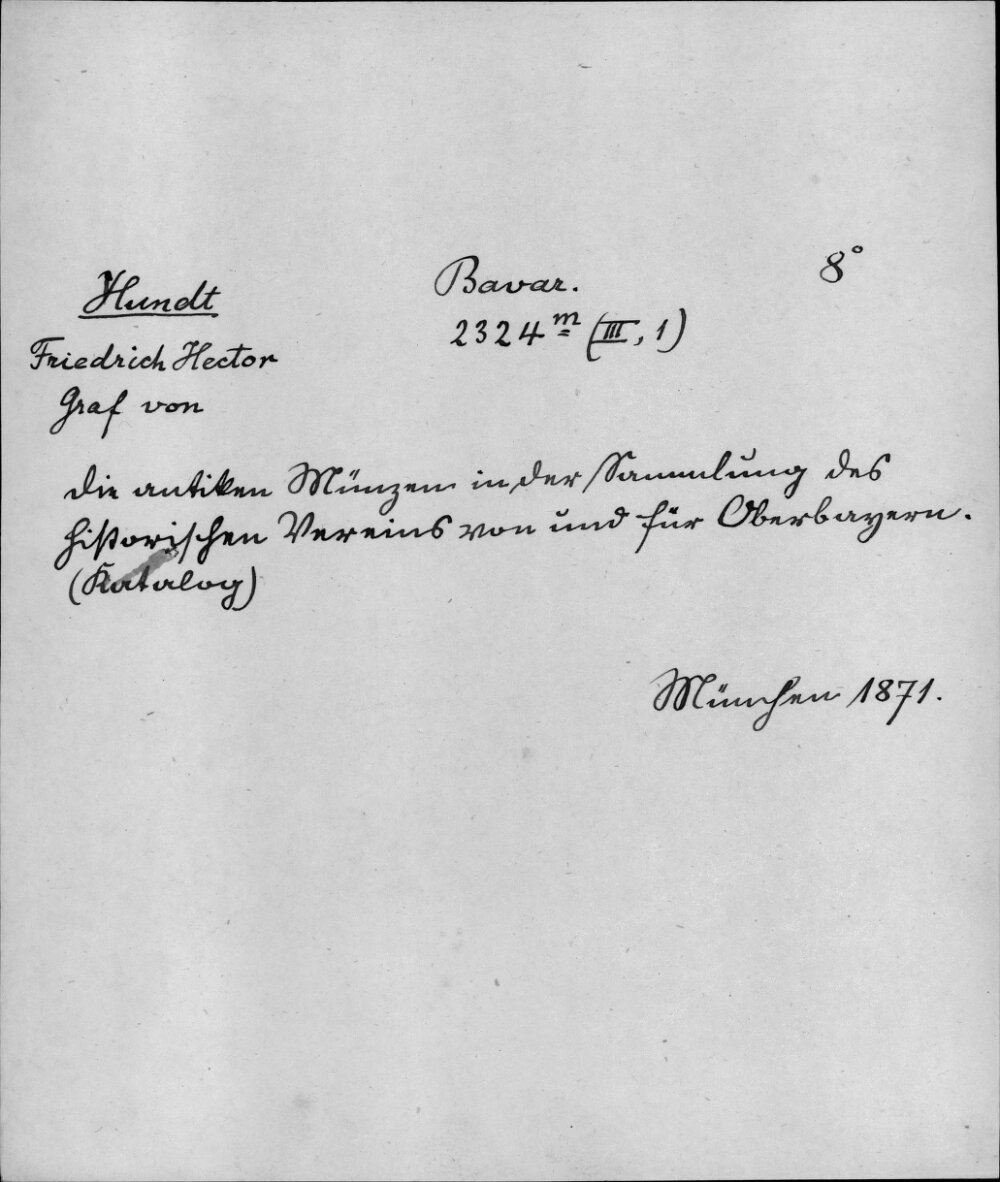 Hundt
Friedrich Hector
Graf von
Bavar.
2324 m (III, 1)
8°
die antiken Münzen in der Sammlung des
historischen Vereins von und für Oberbayern.
(Katalog)
München 1871.